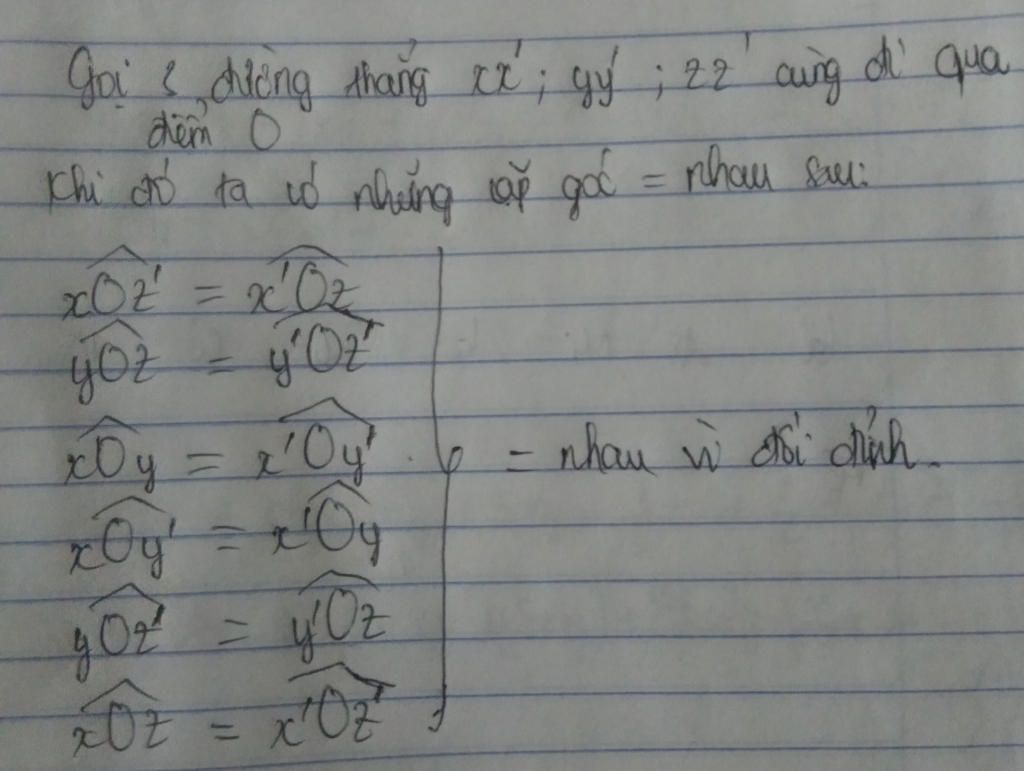 Gọi 3 đường thẳng xx'; yy'; zz' cùng đi qua
điểm O
Khi đó ta có những cặp góc = nhau sau:
xOz' = x'Oz
yOz = y'Oz'
xOy = x'Oy' = nhau vì đối đỉnh.
xOy' = x'Oy
yOz' = y'Oz
xOz = x'Oz'